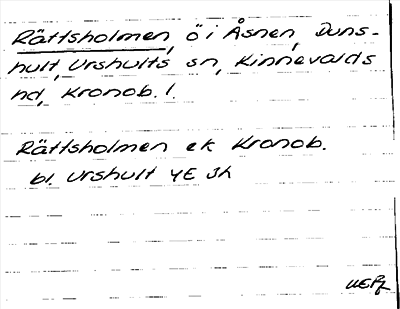 Rättsholmen, ö i Åsnen, Duns-
hult, Urshults sn, Kinnevalds
hd, Kronob. l.
Rättsholmen ek Kronob.
bl. Urshult 4E 3h